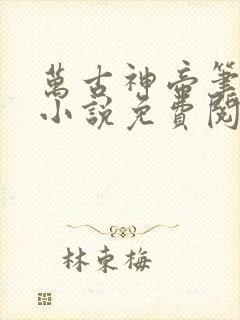 萬古神帝筆
小說免費閱
林東梅